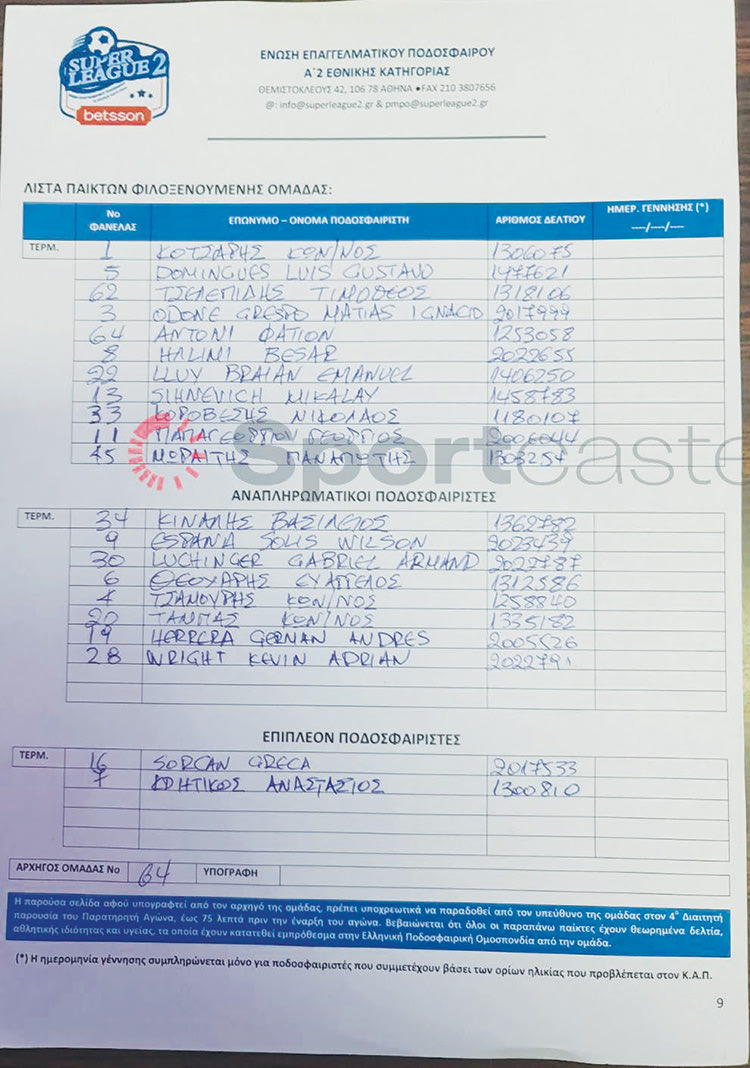 SUPER LEAGUE 2
betsson
ΕΝΩΣΗ ΕΠΑΓΓΕΛΜΑΤΙΚΟΥ ΠΟΔΟΣΦΑΙΡΟΥ
Α΄2 ΕΘΝΙΚΗΣ ΚΑΤΗΓΟΡΙΑΣ
ΘΕΜΙΣΤΟΚΛΕΟΥΣ 42, 106 78 ΑΘΗΝΑ ●FAX 210 3807656
@: info@superleague2.gr & pmpo@superleague2.gr
ΛΙΣΤΑ ΠΑΙΚΤΩΝ ΦΙΛΟΞΕΝΟΥΜΕΝΗΣ ΟΜΑΔΑΣ:
No ΦΑΝΕΛΑΣ ΕΠΩΝΥΜΟ – ΟΝΟΜΑ ΠΟΔΟΣΦΑΙΡΙΣΤΗ ΑΡΙΘΜΟΣ ΔΕΛΤΙΟΥ ΗΜΕΡ. ΓΕΝΝΗΣΗΣ (*) ---/---/---
ΤΕΡΜ. 1 ΚΟΤΣΑΡΗΣ ΚΩΝ/ΝΟΣ 1306075
5 DOMINGUES LUIS GUSTAVO 1477621
62 ΤΣΕΛΕΠΙΔΗΣ ΤΙΜΟΘΕΟΣ 1318106
3 ODONE GRESPO MATIAS IGNACIO 2017999
64 ΑΝΤΟΝΙ ΦΑΤΙΟΝ 1253058
8 HALIMI BESAR 2022655
22 LLUY BRAIAN EMANUEL 1406250
13 SIHNEVICH MIKALAY 1458783
33 ΚΟΡΟΒΕΣΗΣ ΝΙΚΟΛΑΟΣ 1180107
11 ΠΑΠΑΓΕΩΡΓΙΟΥ ΓΕΩΡΓΙΟΣ 2006044
45 ΜΩΡΑΙΤΗΣ ΠΑΝΑΓΙΩΤΗΣ 1303254
Sportcaste
ΑΝΑΠΛΗΡΩΜΑΤΙΚΟΙ ΠΟΔΟΣΦΑΙΡΙΣΤΕΣ
ΤΕΡΜ. 34 ΚΙΝΑΛΗΣ ΒΑΣΙΛΕΙΟΣ 1362782
9 ESPANA SOLIS WILSON 2023439
30 LUCHINGER GABRIEL ARMAND 2022787
6 ΘΕΟΧΑΡΗΣ ΕΥΑΓΓΕΛΟΣ 1312586
4 ΤΣΑΝΟΥΡΗΣ ΚΩΝ/ΝΟΣ 1258840
20 ΤΑΝΠΑΣ ΚΩΝ/ΝΟΣ 1335182
19 HERRERA GERNAN ANDRES 2005526
28 WRIGHT KEVIN ADRIAN 2022791
ΕΠΙΠΛΕΟΝ ΠΟΔΟΣΦΑΙΡΙΣΤΕΣ
ΤΕΡΜ. 16 SORCAN GRECA 2017533
7 ΚΡΗΤΙΚΟΣ ΑΝΑΣΤΑΣΙΟΣ 1300810
ΑΡΧΗΓΟΣ ΟΜΑΔΑΣ Νο 64 ΥΠΟΓΡΑΦΗ
Η παρούσα σελίδα αφού υπογραφτεί από τον αρχηγό της ομάδας, πρέπει υποχρεωτικά να παραδοθεί από τον υπεύθυνο της ομάδας στον 4° Διαιτητή
παρουσία του Παρατηρητή Αγώνα, έως 75 λεπτά πριν την έναρξη του αγώνα. Βεβαιώνεται ότι όλοι οι παραπάνω παίκτες έχουν θεωρημένα δελτία,
αθλητικής ιδιότητας και υγείας, τα οποία έχουν κατατεθεί εμπρόθεσμα στην Ελληνική Ποδοσφαιρική Ομοσπονδία από την ομάδα.
(*) Η ημερομηνία γέννησης συμπληρώνεται μόνο για ποδοσφαιριστές που συμμετέχουν βάσει των ορίων ηλικίας που προβλέπεται στον Κ.Α.Π.
9